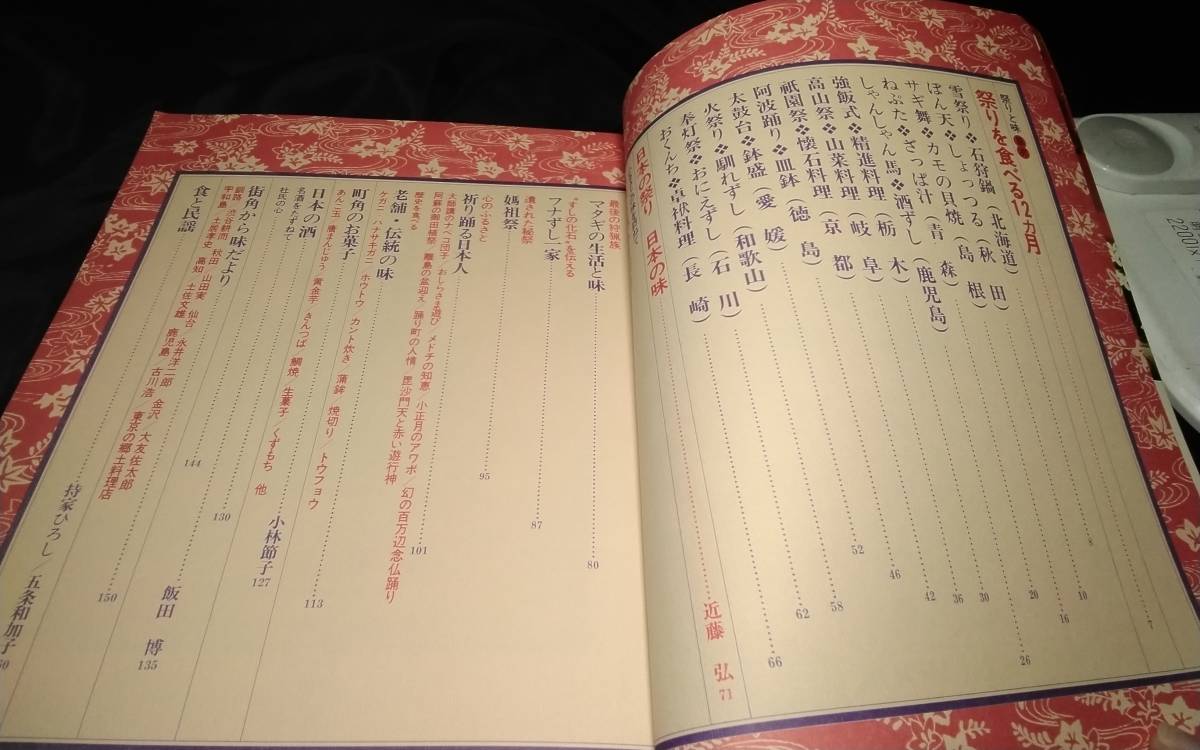 祭りと味
祭りを食べる12カ月 7
雪祭り❖石狩鍋(北海道) 8
ぼん天❖しょっつる(秋田) 10
サギ舞❖カモの貝焼(島根) 16
ねぶた❖ざっぱ汁(青森) 26
しゃんしゃん馬❖酒ずし(鹿児島) 20
強飯式❖精進料理(栃木) 30
高山祭❖山菜料理(岐阜) 36
祇園祭❖懐石料理(京都) 42
阿波踊り❖皿鉢(徳島) 46
太鼓台❖鉢盛(愛媛) 52
火祭り❖馴れずし(和歌山) 58
奉灯祭❖おにえずし(石川) 62
おくんち❖卓袱料理(長崎) 66
日本の祭り 日本の味 近藤 弘 71
最後の狩猟族
マタギの生活と味 80
"すしの化石"を伝える
フナずし一家 87
遺された秘祭
媽祖祭 95
心のふるさと
祈り踊る日本人 101
大師講のナベコ団子 おしらさま遊び メドチの知恵 小正月のアワボ/幻の百万辺念仏踊り
阿蘇の御田植祭 離島の盆迎え/踊り町の人情/毘沙門天と赤い遊行神
歴史を食べる
老舗・伝統の味 113
ケガニ ハナサキガニ ホウトウ カント炊き 蒲鉾 焼切り/トウフヨウ
町角のお菓子 小林節子 127
あんこ玉 腰まんじゅう 黄金芋 きんつば 鯛焼 生菓子/くずもち 他
日本の酒 130
名酒をたずねて
杜氏の心
街角から味だより 飯田 博 135
食と民謡 144
釧路 渋谷耕而 秋田 山田実 仙台 永井洋二郎 金沢 大友佐太郎
宇和島 土居孝史 高知 土佐文雄 鹿児島 古川浩/東京の郷土料理店 150
持家ひろし/五条和加子